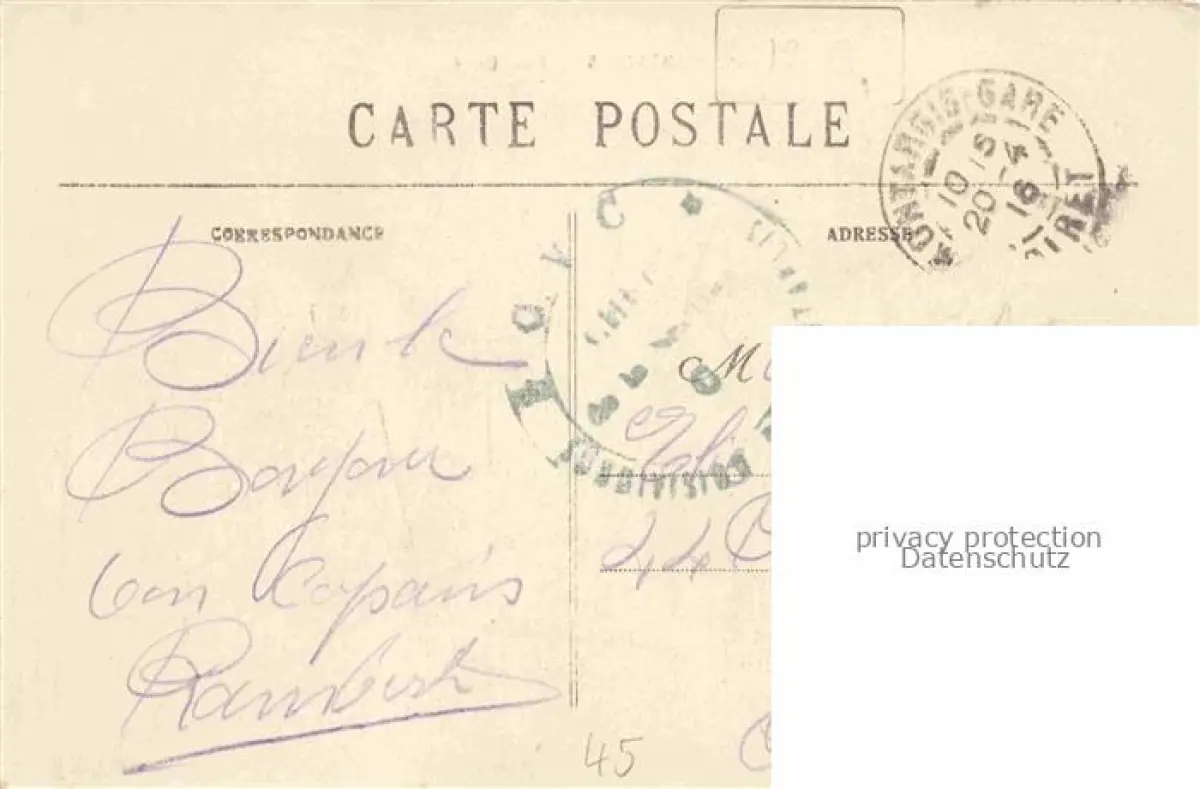 CARTE POSTALE
MONTARGIS-GARE
10 15
20 -4
16
LOIRET
CORRESPONDANCE
ADRESSE
SUBDIVISION
M
44
Bien le
Bonjour
ton Copain
Rambert
45
privacy protection
Datenschutz